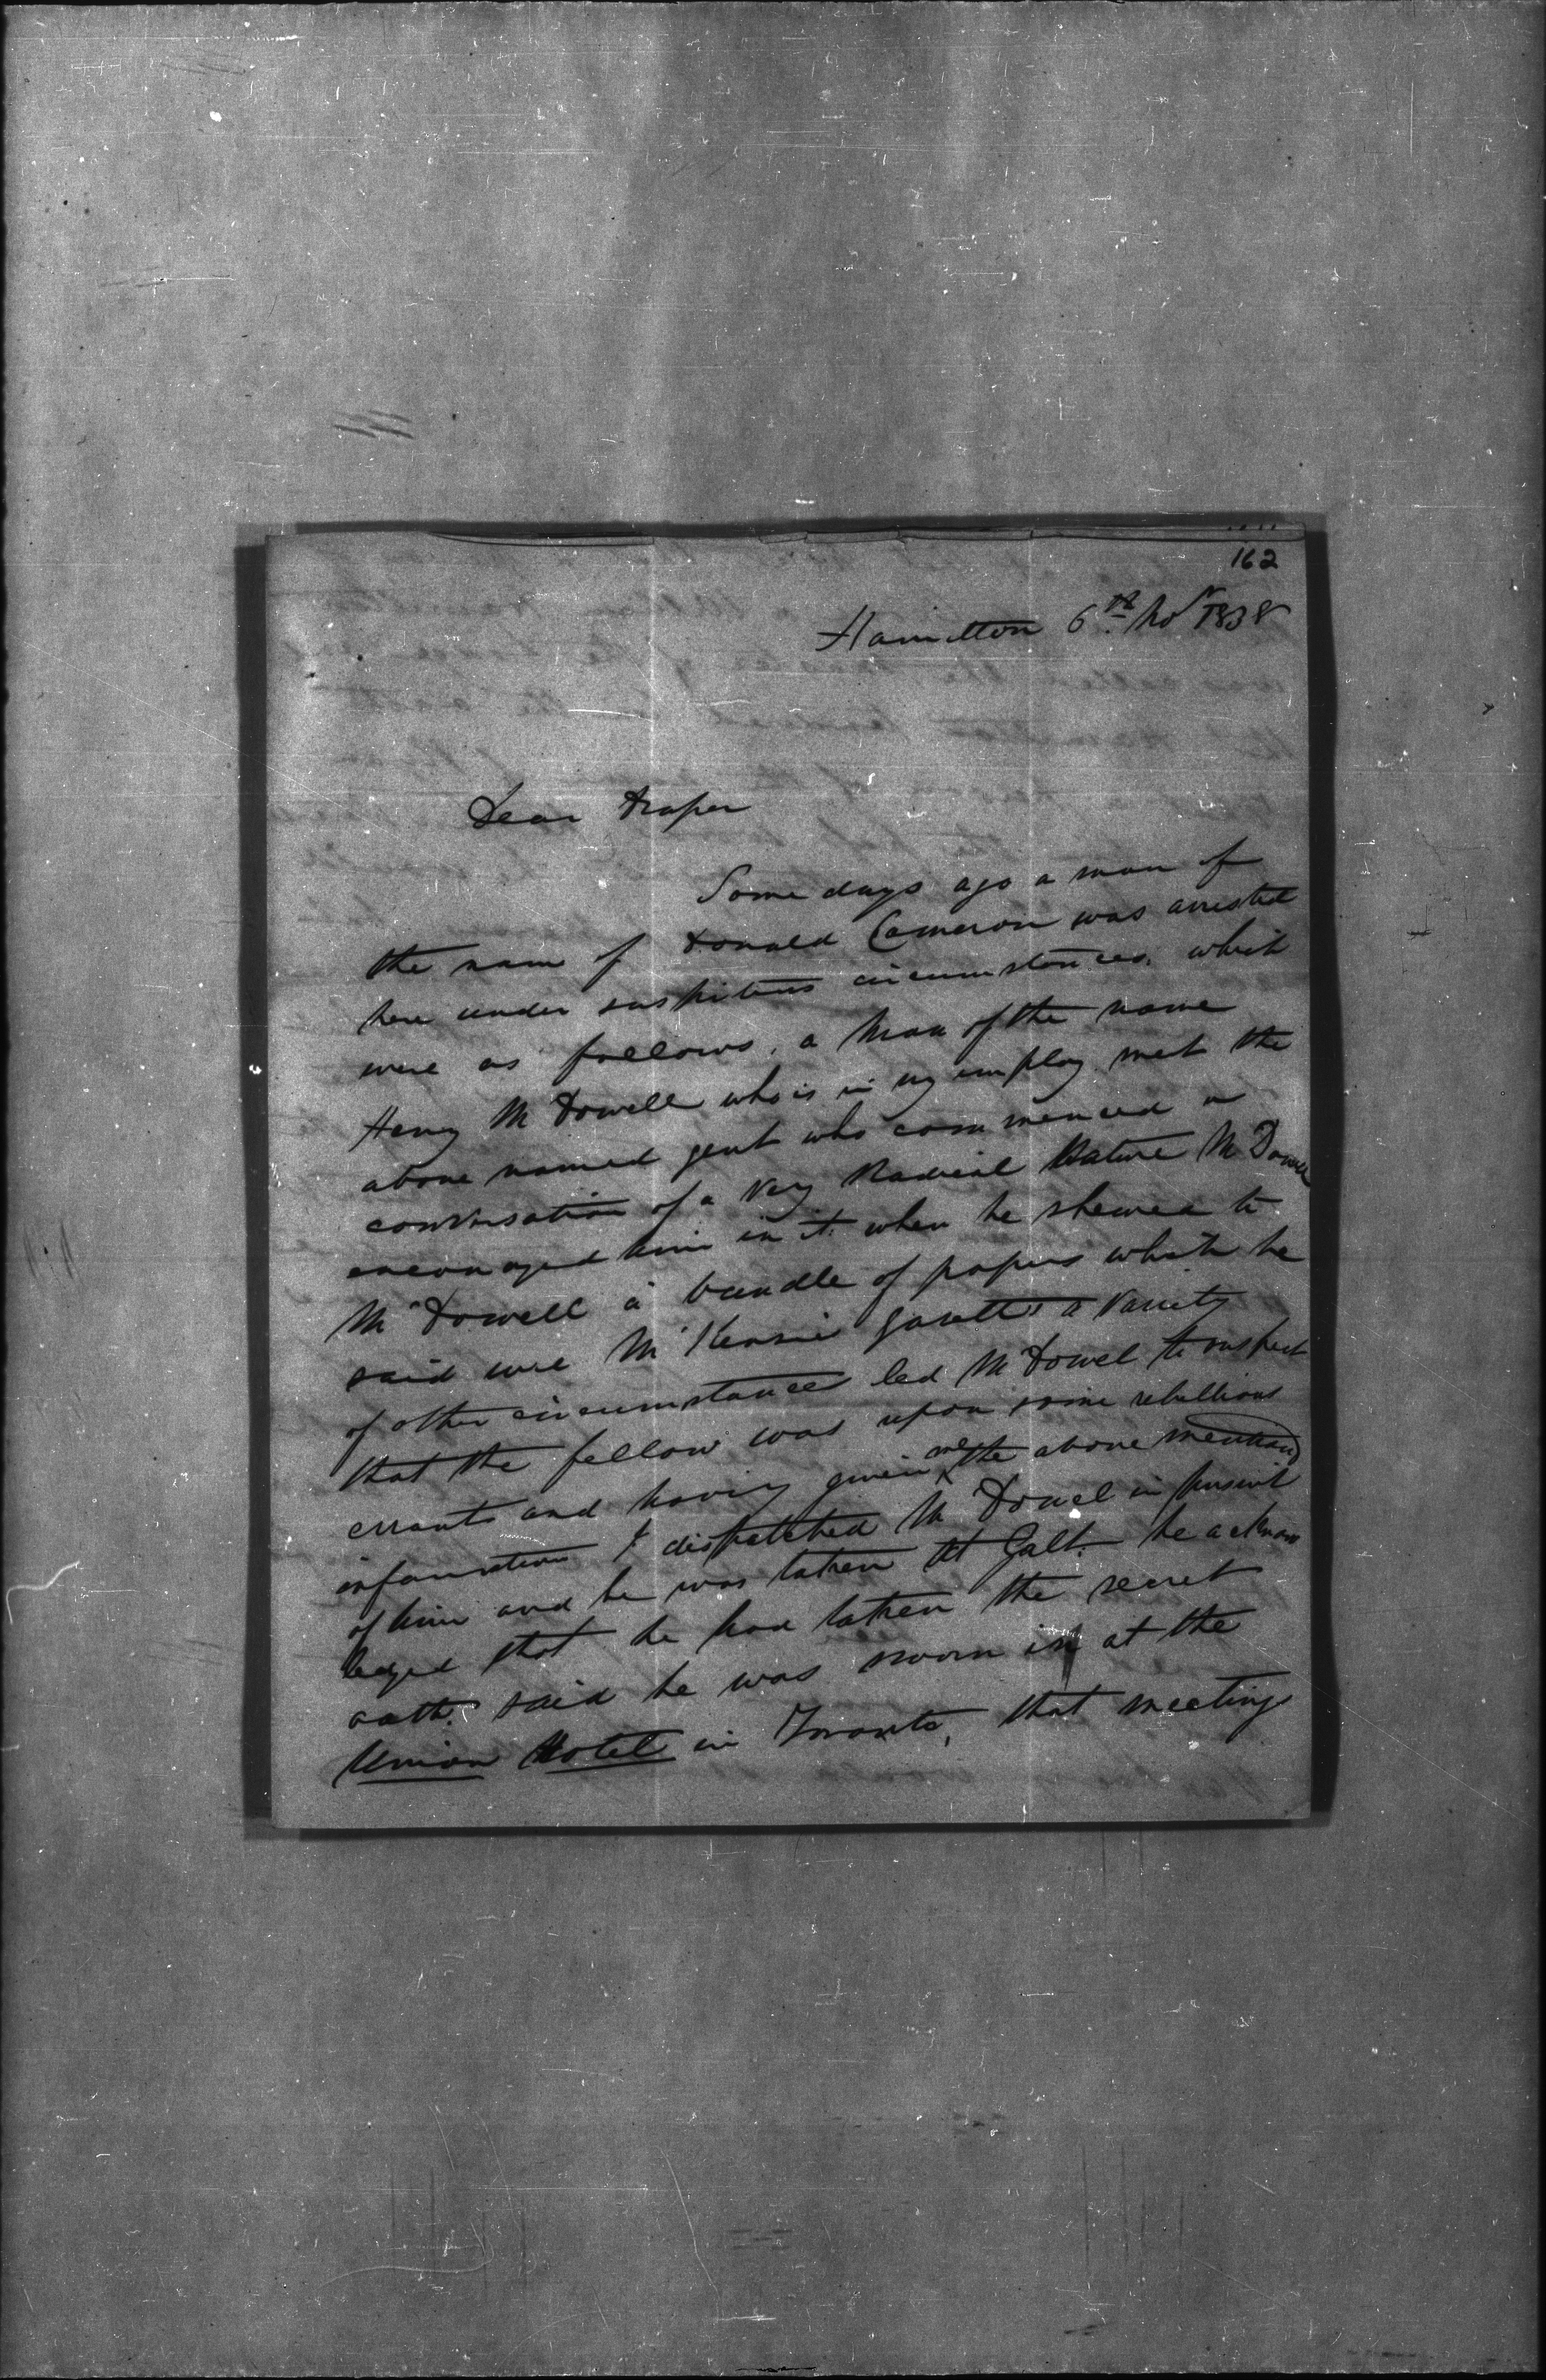 162
Hamilton 6th Nov 1838
Dear Draper
Some days ago a man of
the name of Donald Cameron was arrested
here under suspitious circumstances. which
were as follows. a Man of the name
Henry McDowell who is in my employ met the
above named gent who commenced a
conversation of a very Radical Nature McDowell
encouraged him in it. when he shewed to
McDowell a bundle of papers which he
said were McKensie Gazettes a variety
of other circumstances led McDowel to suspect
that the fellow was upon some rebellious
errants and having given me the above mentiond
information I dispatched McDowel in pursuit
of him and he was taken at Galt. he acknow
ledged that he had taken the secret
oath. said he was sworn in at the
Union Hotel in Toronto, that meetings